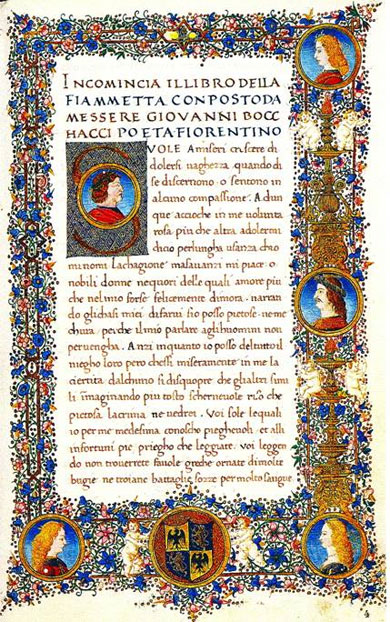 INCOMINCIA IL LIBRO DELLA
FIAMMETTA CONPOSTO DA
MESSERE GIOVANNI BOCC
HACCI POETA FIORENTINO
SVOLE A miseri crescere di
dolersi vaghezza quando di
se discernono o sentono in
alcuno compassione. Adun
que accioche in me volunta
rosa piu che altra adolermi
di cio perlungha usanza
mi nomi lachagione masavanzi mi piace o
nobili donne nequori delle quali amore piu
che nel mio forse felicemente dimora narran
do glichasi miei difarvi sio posso pietose neme
chura perche ilmio parlare aglihuomini non
pervengha. Anzi inquanto io posso deltutto il
niegho loro pero che miseramente in me la
cierbita dalchuno si disquopre che glialtri simi
li imaginando piu tosto schernevole riso che
pietosa lacrima ne vedrei. Voi sole lequali
io per me medesima conoscho pieghevoli et alli
infortuni pie priegho che leggiate. voi leggen
do non troverrete favole greche ornate dimolte
bugie ne troiane battaglie sozze per molto sangue